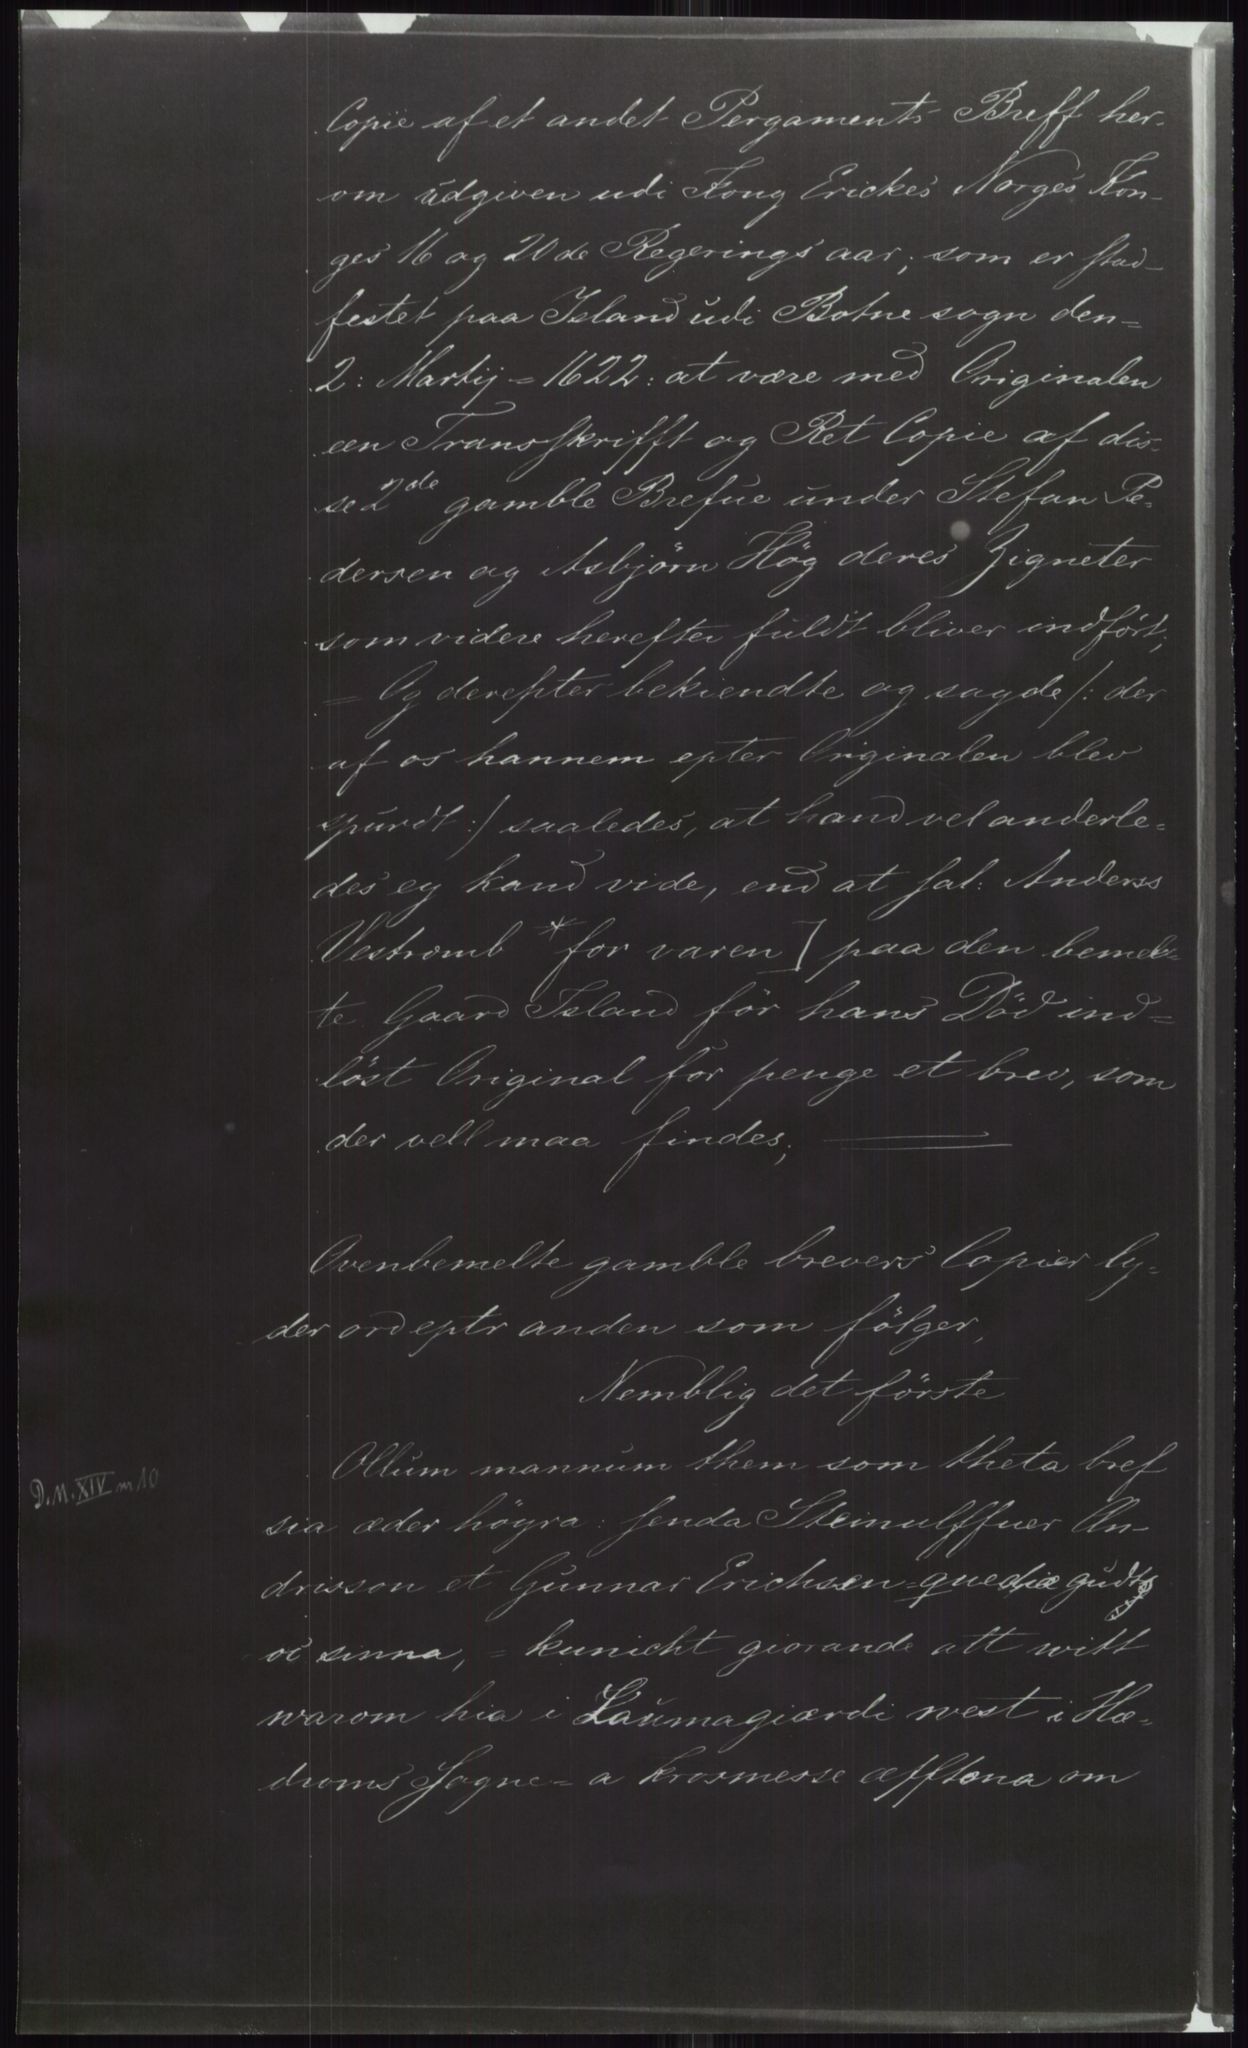 Copie af et andet Pergaments Breff her-
om udgiven udi Kong Erickes Norges Kon-
ges 16 og 20de Regerings aar; som er stad-
festet paa Island udi Botne sogn den=
2: Martij = 1622: at være med Originalen
een Transskrifft og Ret Copie af dis-
se 2de gamble Brefue under Stefan Pe-
dersen og Asbjörn Høg deres Zigneter
som videre herefter fuldt bliver indført;
= Og derepter bekiendte og sagde /: der
af os hannem epter Originalen blev
spurdt :/ saaledes, at hand vel anderle-
des ey kand vide, end at Sal: Anderss
Vestromb * for varen ] paa den bemel-
te Gaard Island før hans Död ind=
löst Original for penge et brev, som
der vell maa findes;
Ovenbemelte gamble brevers Copier ly-
der ord eptr anden som fölger,
Nemblig det förste
D.N. XIV no 10
Ollum mannum them som theta bref
sia æder höyra: senda Steinulffuer An-
drisson et Gunnar Erichsen = quediæ gudts
oc sinna, = kunicht giorande att witt
warom hia i Laumagiærdi west i Hæ-
droms Sogne = a krosmesse æfftena om